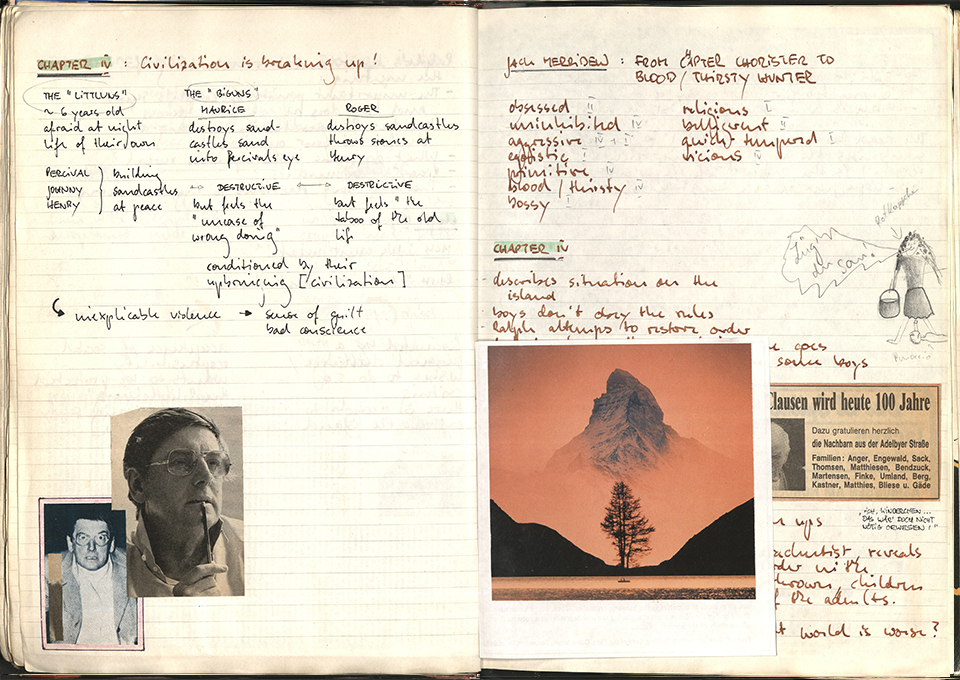 CHAPTER IV : Civilization is breaking up!
THE "LITTLUNS"
~ 6 years old
afraid at night
life of their own
PERCIVAL
JOHNNY
HENRY
building
sandcastles
at peace
THE "BIGUNS"
MAURICE
destroys sand-
castles sand
into Percivals eye
DESTRUCTIVE
but feels the
"unease of
wrong doing"
ROGER
destroys sandcastles
throws stones at
Henry
DESTRICTIVE
but feels "the
taboo of the old
life
conditioned by their
upbringing [civilization]
inexplicable violence → sense of guilt
bad conscience
JACK MERRIDEW : FROM CHORISTER TO
BLOOD/THIRSTY HUNTER
obsessed II
uninhibited IV
aggressive IV
egotistic I
primitive IV
blood/thirsty IV
bossy I
religious I
belligerent
quick tempered I
vicious IV
CHAPTER IV
- describes situation on the
island
- boys don't obey the rules
- Ralph attemps to restore order
goes
some boys
Rotkäppchen
"Lüg
du Sau!
Clausen wird heute 100 Jahre
Dazu gratulieren herzlich
die Nachbarn aus der Adelbyer Straße
Familien: Anger, Engewald, Sack,
Thomsen, Matthiesen, Bendzuck,
Martensen, Finke, Umland, Berg,
Kastner, Matthies, Bliese u. Gäde
"OH, KINDERCHEN...
DAS WÄR DOCH NICHT
NÖTIG GEWESEN!"
ups
reveals
with
thrown, children
of the adults.
world is worse?